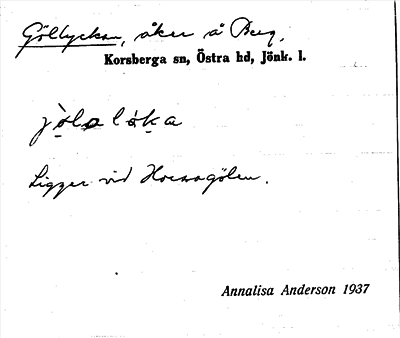 Göllyckan, åker å Berg.
Korsberga sn, Östra hd, Jönk. l.
jò̱lalǻka
Ligger vid
Annalisa Anderson 1937